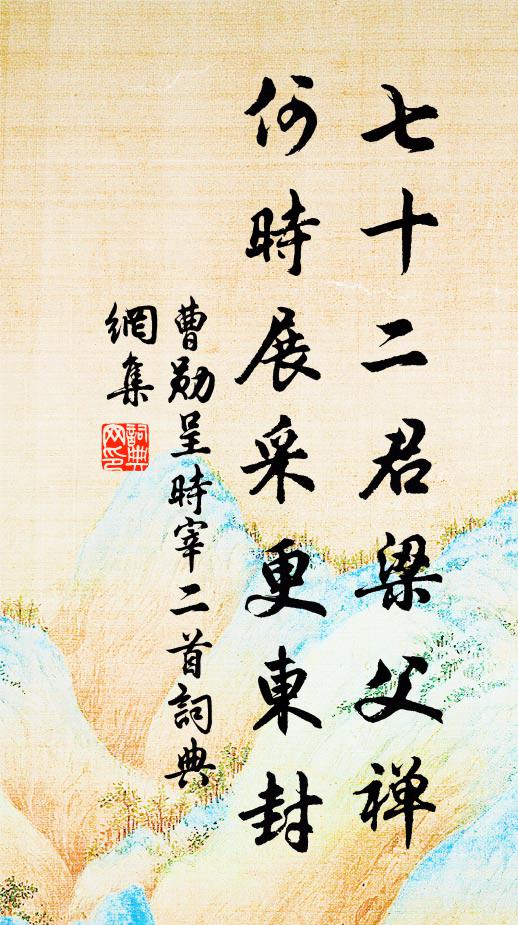 七十二君梁父禅
何時展采更東封
曹勛呈時宰二首詞典
網集
詞典網印